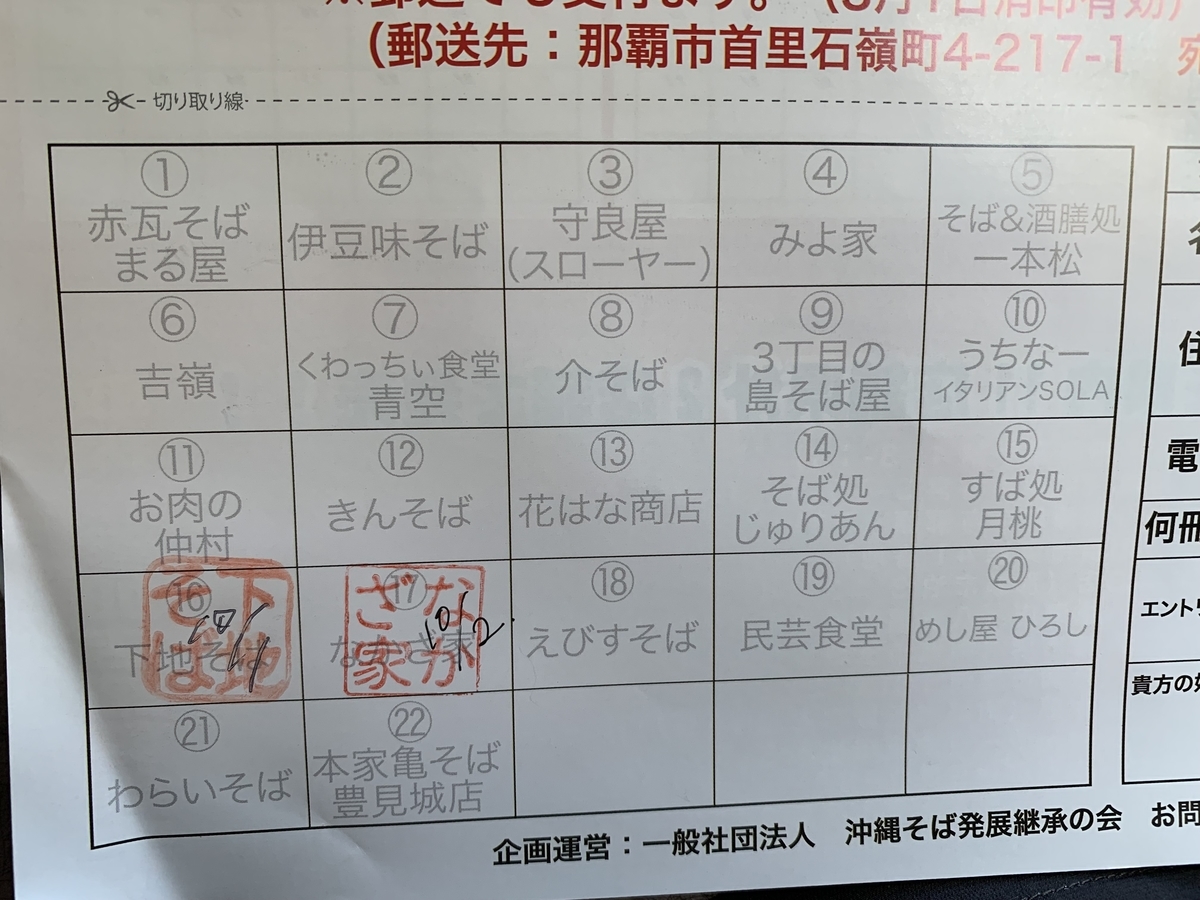 (郵送先：那覇市首里石嶺町4-217-1
切り取り線
①
赤瓦そば
まる屋
②
伊豆味そば
③
守良屋
(スローヤー)
④
みよ家
⑤
そば&酒膳処
一本松
⑥
吉嶺
⑦
くわっちぃ食堂
青空
⑧
介そば
⑨
3丁目の
島そば屋
⑩
うちなー
イタリアンSOLA
⑪
お肉の
仲村
⑫
きんそば
⑬
花はな商店
⑭
そば処
じゅりあん
⑮
すば処
月桃
⑯
下地そば
下地
そば
10/1
⑰
なかざ家
なか
ざ家
10/2
⑱
えびすそば
⑲
民芸食堂
⑳
めし屋 ひろし
㉑
わらいそば
㉒
本家亀そば
豊見城店
電
何冊
エント
貴方の
企画運営：一般社団法人 沖縄そば発展継承の会 お問